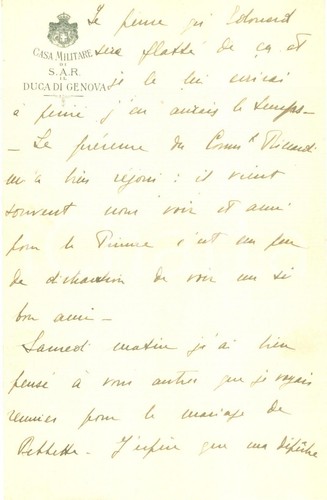 CASA MILITARE
DI
S.A.R.
IL
DUCA DI GENOVA
Je pense qu' Edouard
sera flatté de ça et
je le lui écrirai
à peine j'en aurai le temps —
— La présence du Comte
m'a bien réjoui : il vient
souvent nous voir et aussi
pour le Prince c'est un peu
de distraction de voir un si
bon ami —
Samedi matin j'ai bien
pensé à vous autres que je voyais
réunies pour le mariage de
J'espère que ma dépêche